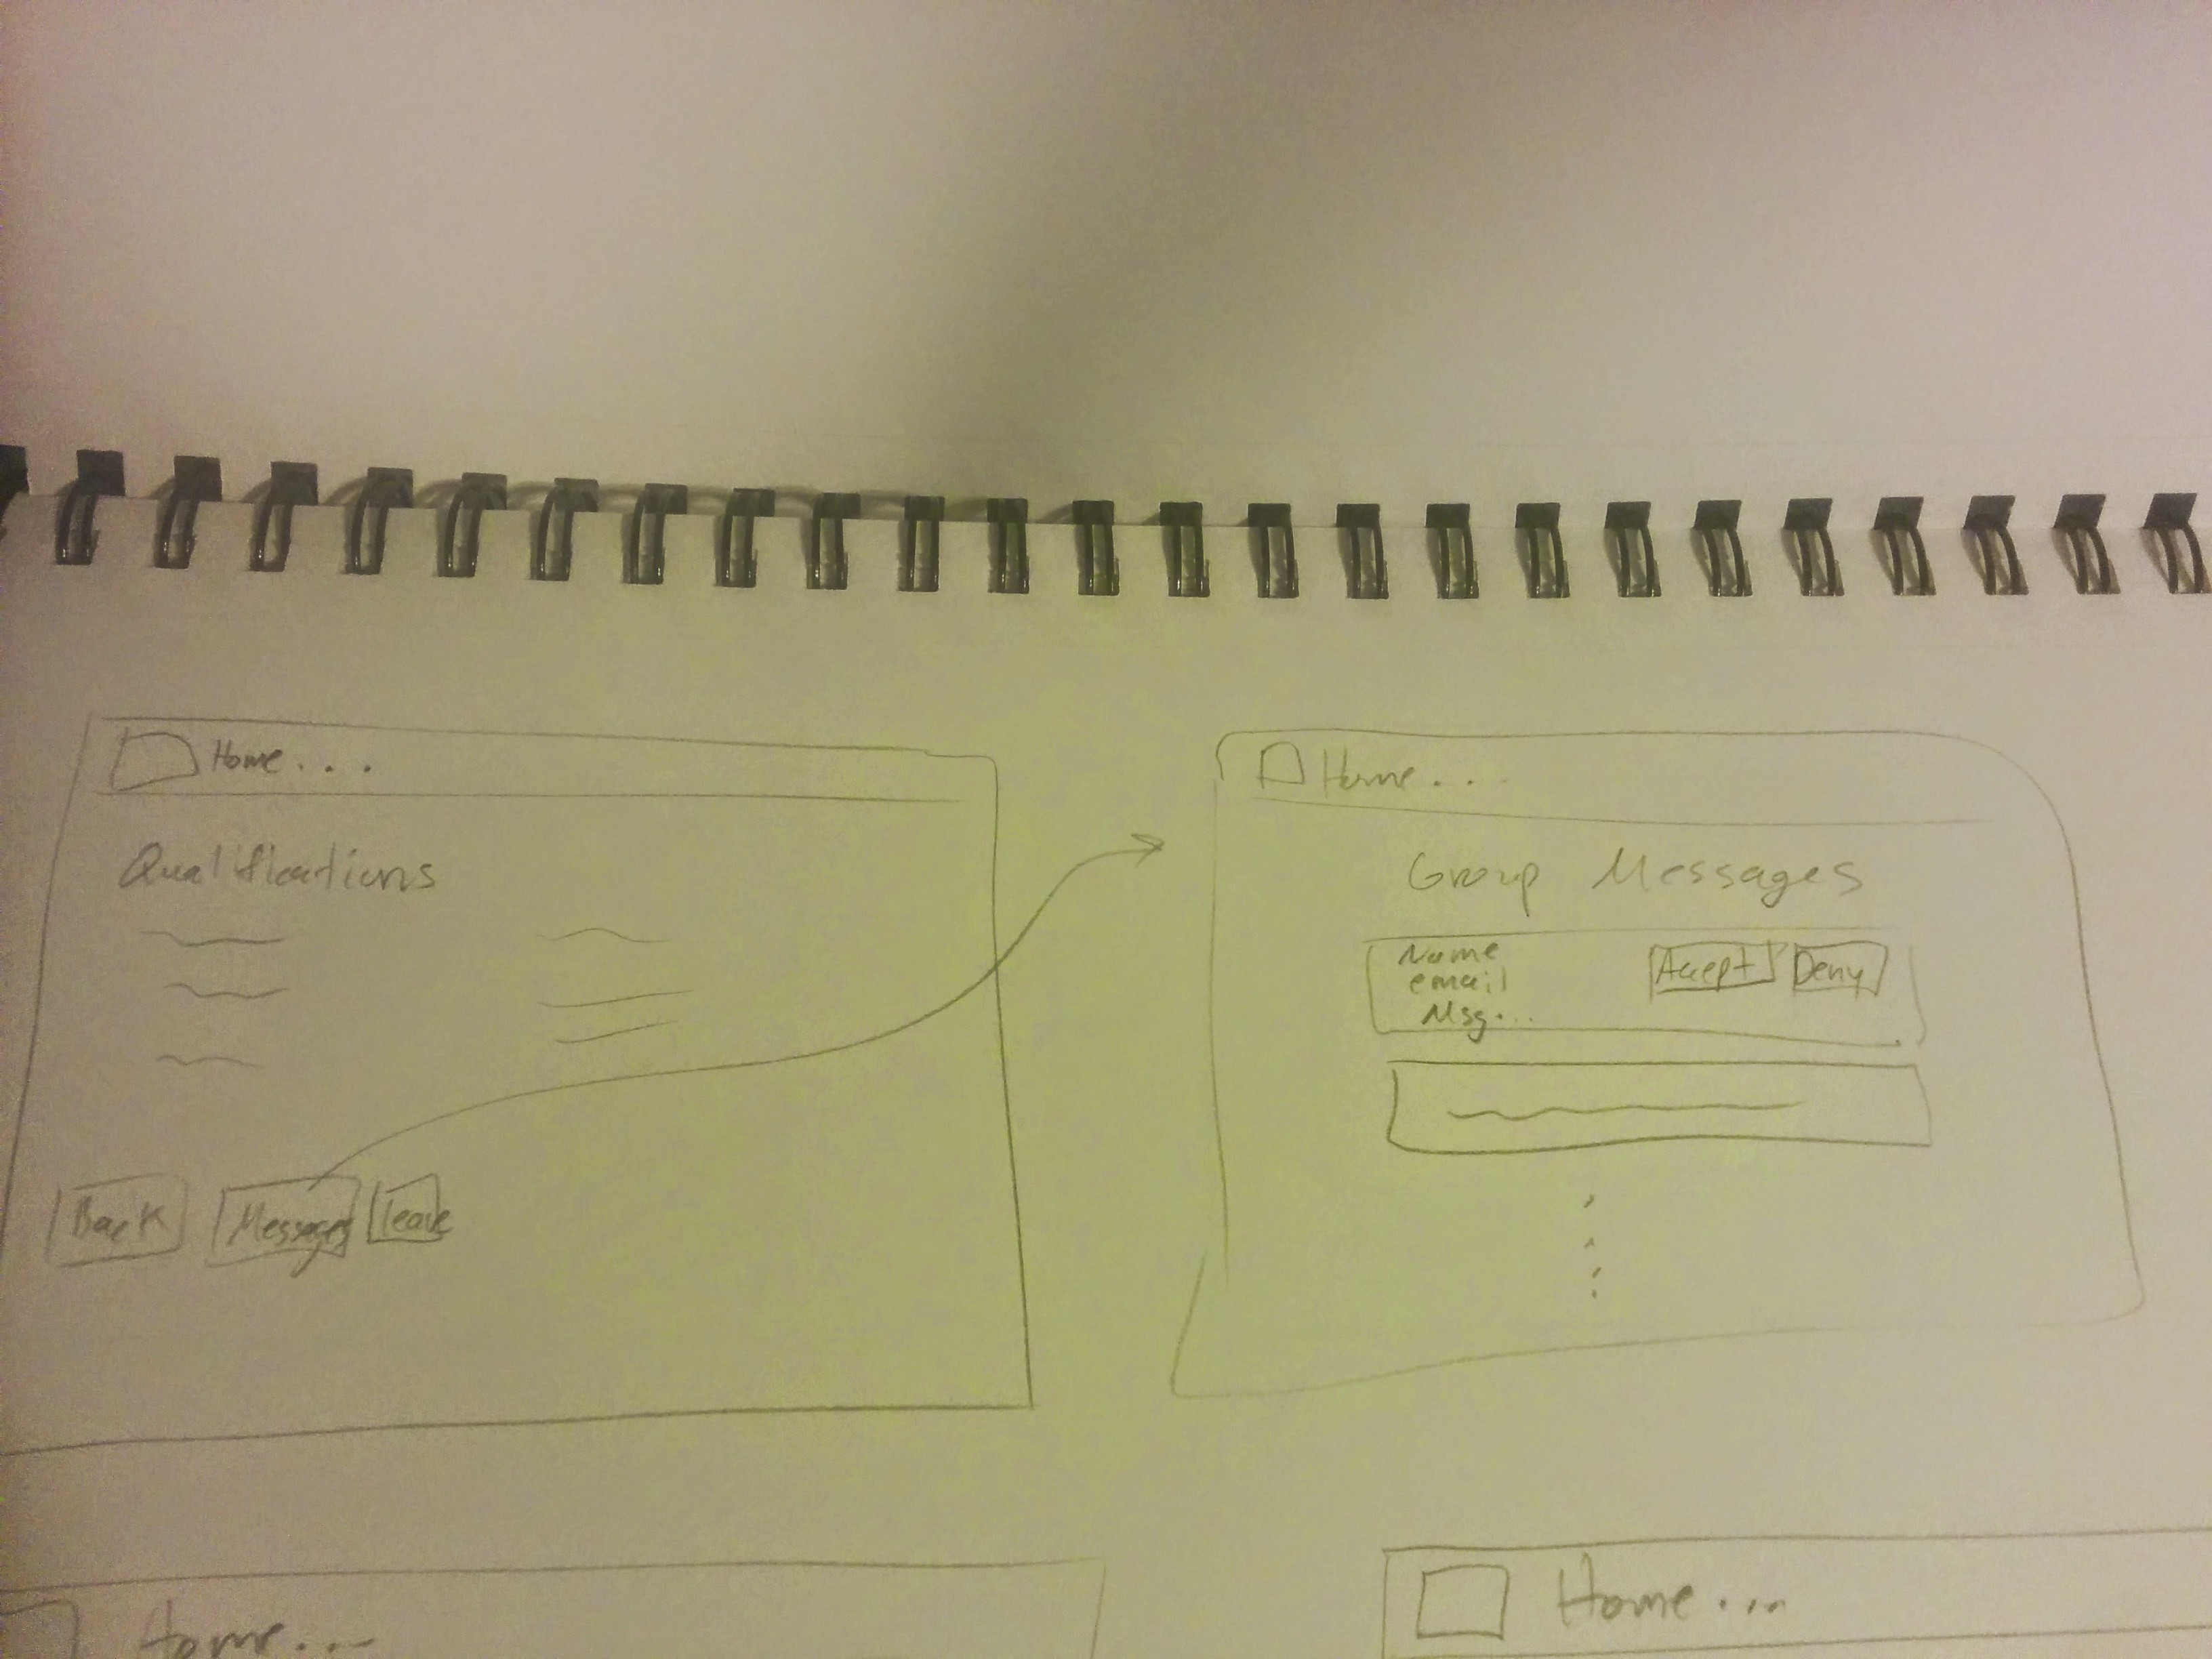 Home...
Qualifications
Back Messages leave
Home...
Group Messages
Name
email
Msg...
Accept Deny
Home...
Home...